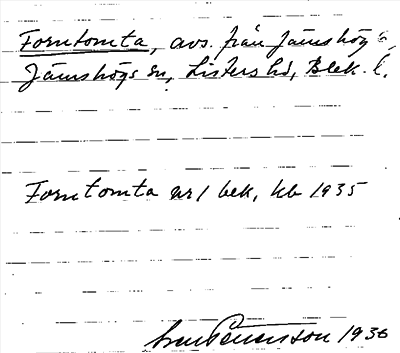 Forntomta, avs. från Jämshög
Jämshögs sn, Listers hd, Blek. l.
Forntomta nr 1 bek, kb 1935
1936